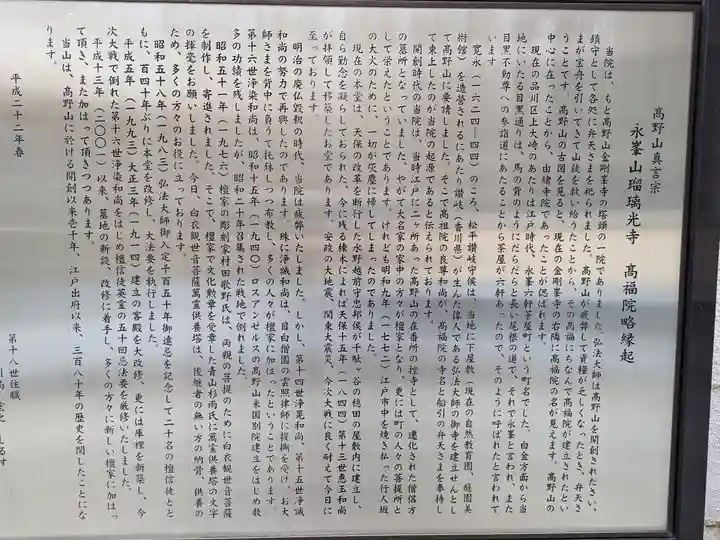 高野山真言宗
永峯山瑠璃光寺　高福院略縁起
当院は、もと高野山金剛峯寺の塔頭の一院でありました。弘法大師は高野山を開創されたさい、
鎮守として各処に弁天さまを祀られました。高野山が疲弊して資糧が乏しくなったとき、弁天さ
まが宝舟を引いてきて山徒を救い給うたことから、その高福にちなんで高福院が建立されたとい
うことです。高野山の古図を見ると、現在の金剛峯寺の右隣に高福院の名が見えます。高野山の
中心に在ったことから、由緒寺院であったことが偲ばれます。
現在の品川区上大崎のあたりは江戸時代、永峯六軒茶屋町という町名でした。白金方面から当
地にいたる目黒通りは、馬の背のようにだらだらと長い尾根の道で、それで永峯と言われ、また
目黒不動尊への参詣道にあたることから茶屋が六軒あったので、そのように呼ばれたと言われて
います
寛永（一六二四―四四）のころ、松平讃岐守侯は、当地に下屋敷（現在の自然教育園、庭園美
術館）を造営されるにあたり讃岐（香川県）が生んだ偉人である弘法大師の御寺を建立せんとし
て高野山に要請しました。そこで高祖院の良尊和尚が、高福院の寺名と船引の弁天さまを奉持し
て東上したのが当院の起源であると伝えられております。
開創時代の当院は、当時江戸に二ヶ所あった高野山の在番所の控寺として、遷化された僧侶方
の墓所となっていました。やがて大名家の家中の方々が檀家となり、更には町の人々の菩提所と
して栄えたということであります。けれども明和九年（一七七二）江戸市中を焼き払った行人坂
の大火のために、一切が灰塵に帰してしまったのでありました。
現在の本堂は、天保の改革を断行した水野越前守忠邦侯が千駄ヶ谷の穏田の屋敷内に建立し、
自ら勤念を凝らしておられた、今に残る棟木によれば天保十五年（一八四四）第十三世恵玉和尚
が拝領して移築したお堂であります。安政の大地震、関東大震災、今次大戦に良く耐えて今日に
至っております
明治の廃仏毀釈の時代、当院は疲弊いたしました。しかし、第十四世浄冕和尚、第十五世浄誠
和尚の努力で再興したのであります。殊に浄誠和尚は、目白僧園の雲照律師に提撕を受け、お大
師さまを背中に負うて托鉢しつつ布教し、多くの人々が檀家に加はったということであります。
第十六世浄染和尚は、昭和十五年（一九四〇）ロスアンゼルスの高野山米国別院建立をはじめ数
多の功績を残しましたが、昭和二十年召集された戦地で倒れました。
昭和五十一年（一九七六）檀家の彫刻家村田歌野氏は、両親の菩提のために白衣観世音菩薩
を制作し、寄進されました。そこで、檀家で文化勲章を受章した青山杉雨氏に萬霊供養塔の文字
の揮毫をお願いしました。今日、白衣観世音菩薩萬霊供養塔は、後継者の無い方の納骨、供養の
ため、多くの方々のお役に立っております。
昭和五十八年（一九八三）弘法大師御入定千百五十年御遠忌を記念して二千名の檀信徒とと
もに、百四十年ぶりに本堂を改修し、大法要を執行しました。
平成五年（一九九三）大正三年（一九一四）建立の客殿を大改修、更には庫裡を新築し、今
次大戦で倒れた第十六世浄染和尚をはじめ檀信徒英霊の五十回忌法要を厳修いたしました。
平成十三年（二〇〇一）以来、墓地の新設、改修に着手し、多くの方々に新しい檀家に加はっ
て頂き、また加はって頂きつつあります。
当山は、高野山に於ける開創以来壱千年、江戸出府以来、三百八十年の歴史を閲したことにな
ります。
平成二十二年春
第十八世住職